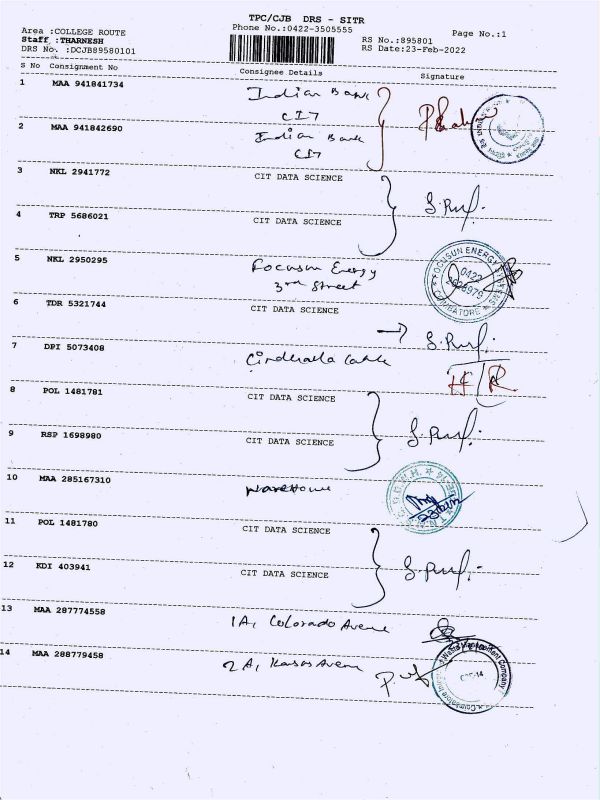 TPC/CJB DRS - SITR
Area :COLLEGE ROUTE
Phone No.:0422-3505555
Page No.:1
Staff :THARNESH
RS No.:895801
DRS No. :DCJB89580101
RS Date:23-Feb-2022
S No Consignment No Consignee Details Signature
1 MAA 941841734 Indian Bank
CIT
2 MAA 941842690 Indian Bank
CIT
3 NKL 2941772 CIT DATA SCIENCE
4 TRP 5686021 CIT DATA SCIENCE
5 NKL 2950295 Focusun Energy
3rd Street
FOCUSUN ENERGY
0422
COIMBATORE
6 TDR 5321744 CIT DATA SCIENCE
7 DPI 5073408
8 POL 1481781 CIT DATA SCIENCE
9 RSP 1698980 CIT DATA SCIENCE
10 MAA 285167310 Warehouse
11 POL 1481780 CIT DATA SCIENCE
12 KDI 403941 CIT DATA SCIENCE
13 MAA 287774558 1A, Colorado Avenue
14 MAA 288779458 2A, Kansas Avenue